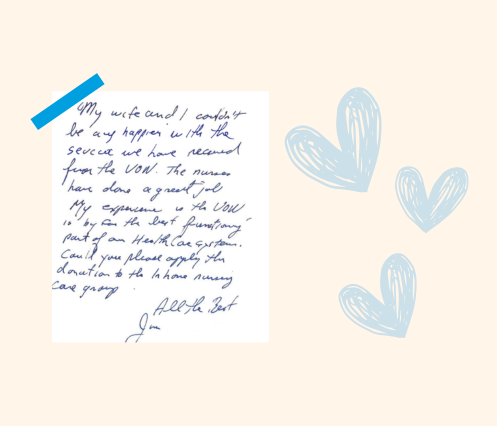 My wife and I couldn't
be any happier with the
service we have received
from the VON. The nurses
have done a great job
My experience is the VON
is by far the best functioning
part of our HealthCare system.
Could you please apply this
donation to the In home nursing
care group.
All the Best
Jim